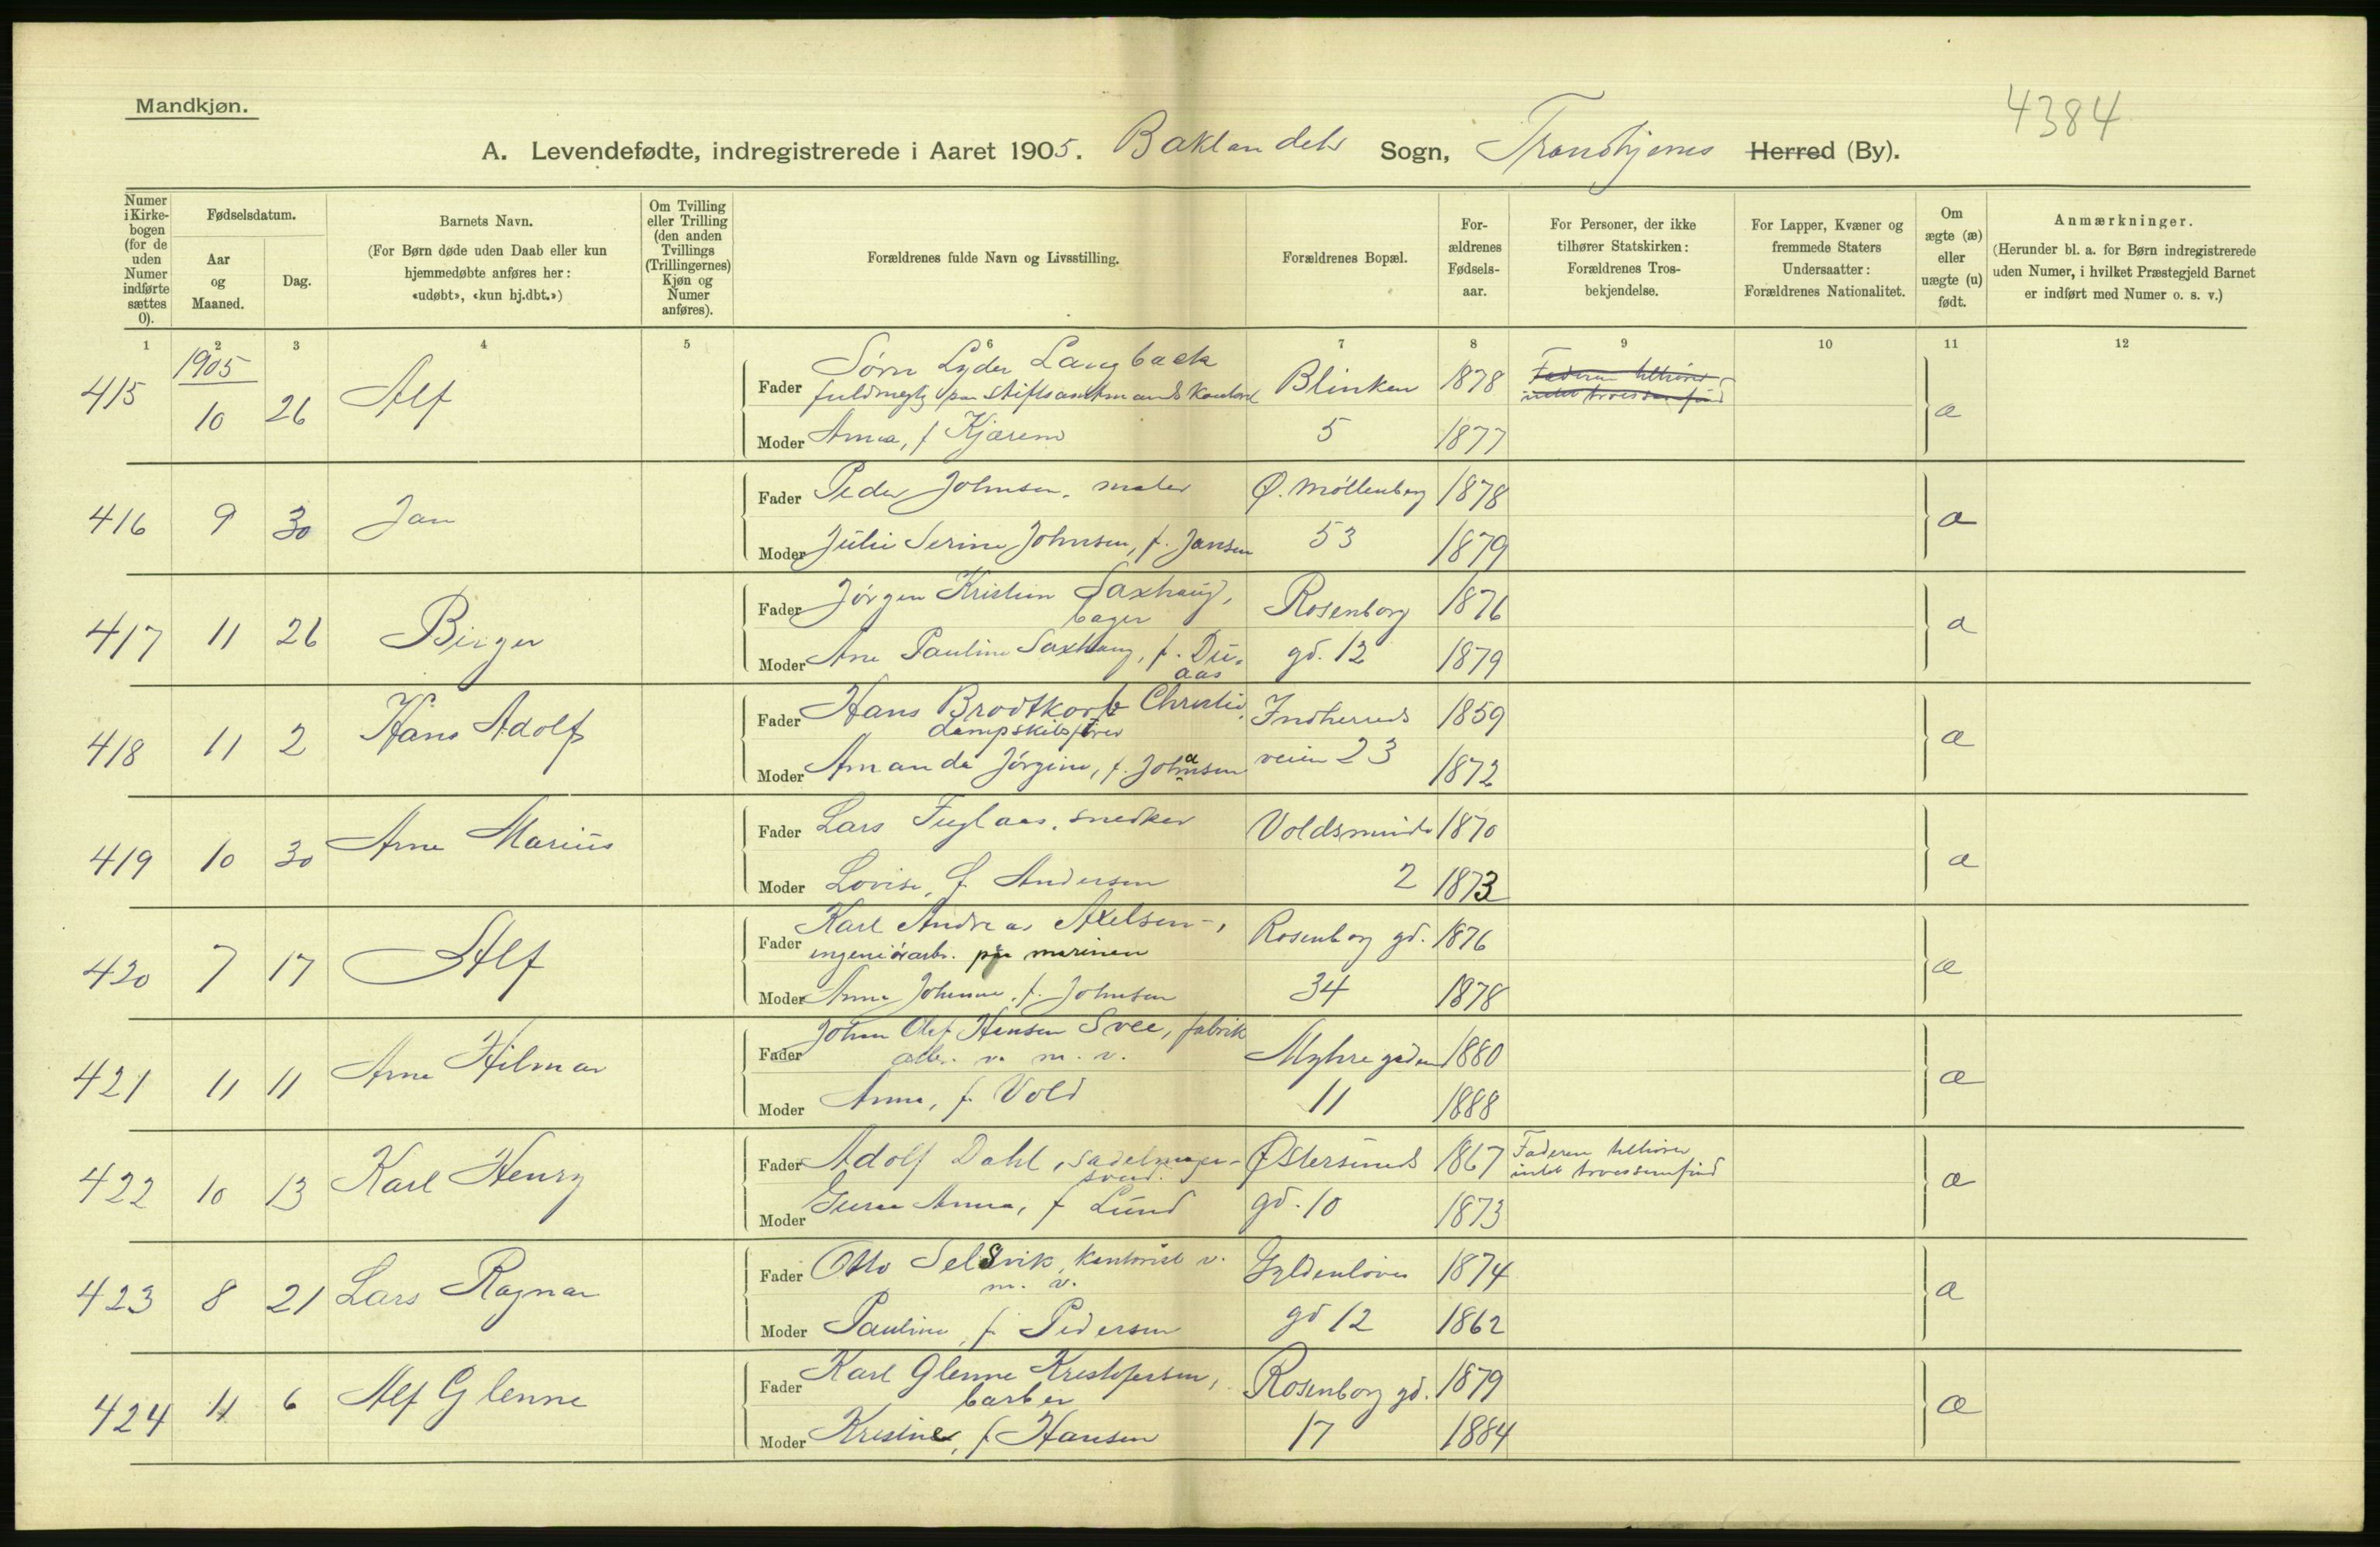 Mandkjøn.
4384
A. Levendefødte, indregistrerede i Aaret 1905. Baklandets Sogn, Trondhjems Herred (By).
Numer i Kirkebogen (for de uden Numer indførte sættes 0).
Fødselsdatum.
Aar og Maaned.
Dag.
Barnets Navn.
(For Børn døde uden Daab eller kun hjemmedøbte anføres her: «udøbt», «kun hj.dbt.»)
Om Tvilling eller Trilling (den anden Tvillings (Trillingernes) Kjøn og Numer anføres).
Forældrenes fulde Navn og Livsstilling.
Forældrenes Bopæl.
Forældrenes Fødselsaar.
For Personer, der ikke tilhører Statskirken: Forældrenes Trosbekjendelse.
For Lapper, Kvæner og fremmede Staters Undersaatter: Forældrenes Nationalitet.
Om ægte (æ) eller uægte (u) født.
Anmærkninger.
(Herunder bl. a. for Børn indregistrerede uden Numer, i hvilket Præstegjeld Barnet er indført med Numer o. s. v.)
1 2 3 4 5 6 7 8 9 10 11 12
1905
415 10 26 Alf
Fader Sørn Lyder Langback
fuldmegtig paa Stiftsamtmands Kontoret Blinken 1878 Faderen tilhører
intet troessamfund
Moder Anna, f Kjærem 5 1877 æ
416 9 30 Jan
Fader Peder Johnsen, maler Ø. Møllenberg 1878
Moder Julie Serine Johnsen, f. Jansen 53 1879 æ
417 11 26 Birger
Fader Jørgen Kristian Saxhaug,
bager Rosenborg 1876
Moder Ane Pauline Saxhaug, f. Du-
aas gd. 12 1879 æ
418 11 2 Hans Adolf
Fader Hans Brodtkorb Christie,
dampskibsfører Indherreds 1859
Moder Amanda Jørgine, f. Johansen veien 23 1872 æ
419 10 30 Arne Marius
Fader Lars Fuglaas, snedker Voldsminde 1870
Moder Lovise, f Andersen 2 1873 æ
420 7 17 Alf
Fader Karl Andreas Axelsen,
ingeniørarb. på marinen Rosenborg gd. 1876
Moder Anna Johanna, f. Johnsen 34 1878 æ
421 11 11 Arne Hilmar
Fader Johan Olaf Hansen Svee, fabrik
arb. v. m. v. Myhregaden 1880
Moder Anna, f. Vold 11 1888 æ
422 10 13 Karl Henry
Fader Adolf Dahl, sadelmager-
svend. Østersunds 1867 Faderen tilhører
intet troessamfund
Moder Anna, f Lund gd. 10 1873 æ
423 8 21 Lars Ragnar
Fader Otto Selsvik, kontorist v.
m. v. Gyldenløves 1874
Moder Pauline, f. Pedersen gd 12 1862 æ
424 11 6 Alf Glenne
Fader Karl Glenne Kristofersen,
barber Rosenborg gd. 1879
Moder Kristine, f Hansen 17 1884 æ